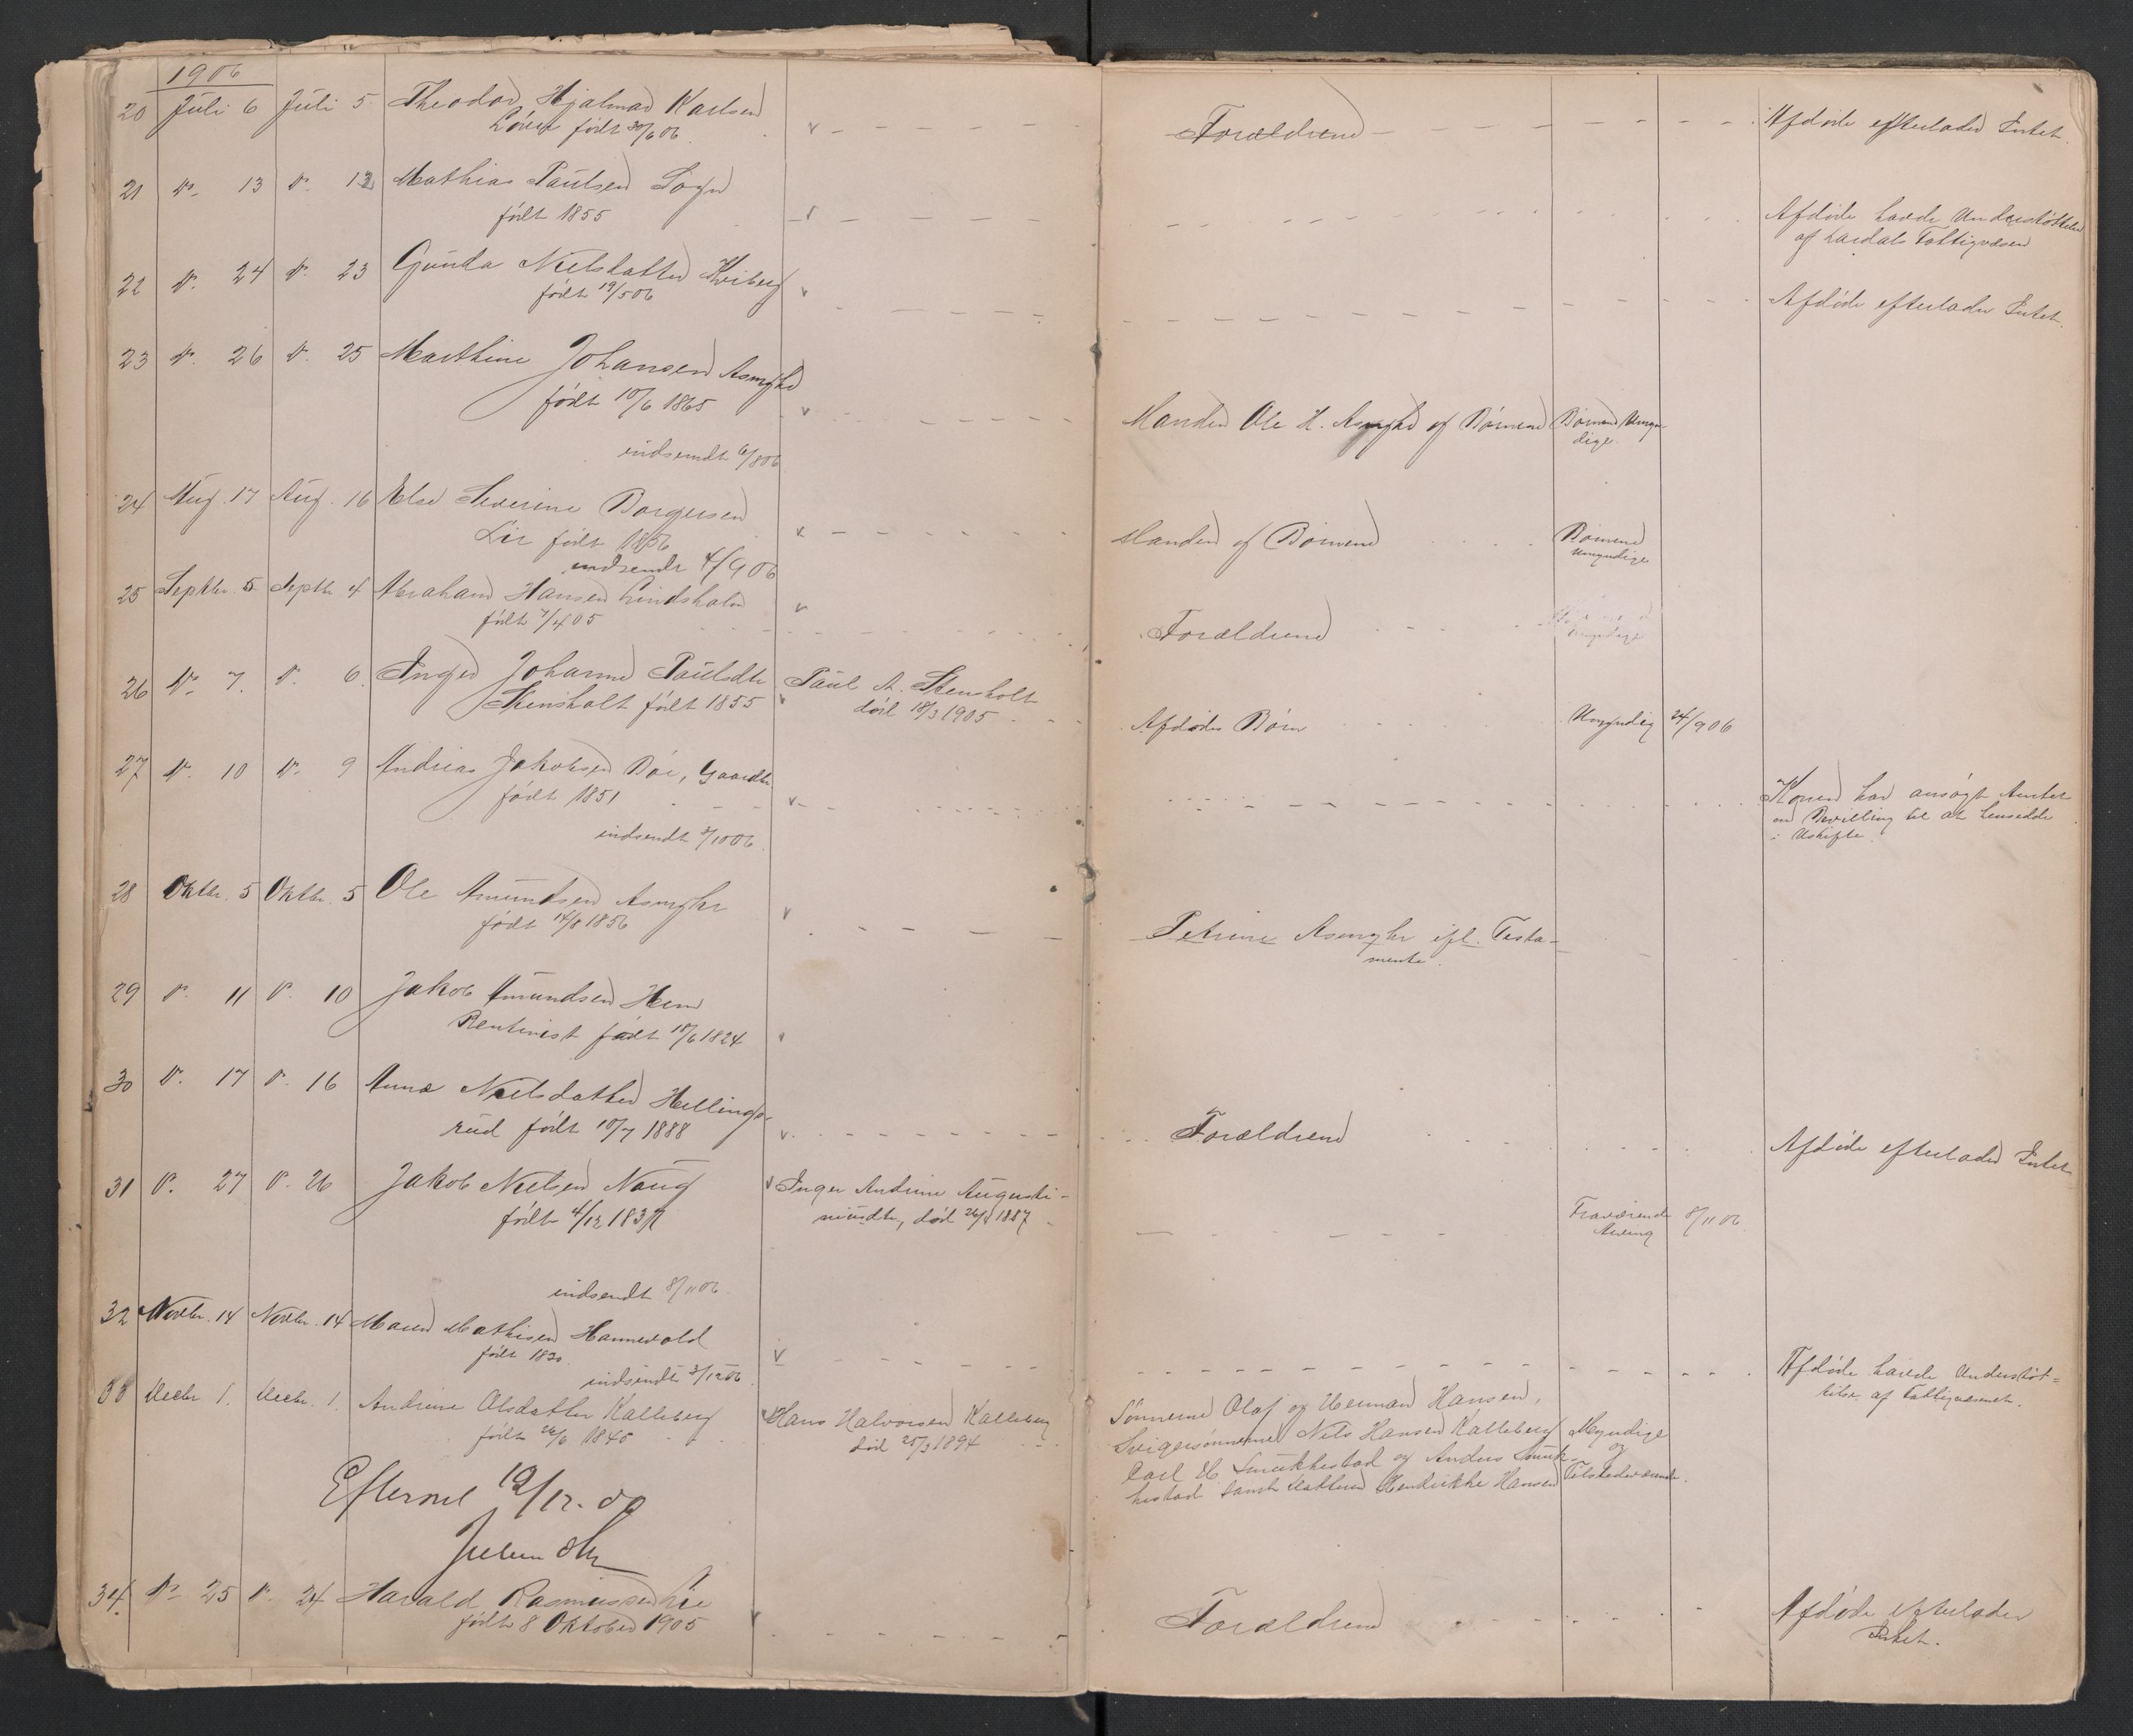 1906
20 Juli 6 Juli 5 Theodor Hjalmar Karlsen
født 30/6 06. v Forældrene Afdøde efterlader Intet.
21 do 13 do 12 Mathias Paulsen Sogn
født 1855 v Afdøde havde Understøttelse
af Lardals Fattigvæsen
22 do 24 do 23 Gunda Nielsdatter Kviberg
født 19/5 06 v Afdøde efterlader Intet.
23 do 26 do 25 Marthine Johansen Asmyhr
født 10/6 1865 v Manden Ole H. Asmyhr og Børnene Børnene Umyn-
dige.
indsendt 6/8 06
24 Aug. 17 Aug. 16 Else Severine Borgersen
Lie født 1856 v Manden og Børnene Børnene
Umyndige
indsendt 4/9 06
25 Septbr. 5 Septb. 4 Abraham Hansen Lindsholm
født 7/4 05 v Forældrene
26 do 7. do 6. Inger Johanne Paulsdtr Paul A. Stensholt
Stensholt født 1855 v død 18/3 1905 Afdødes Børn Umyndig 24/9 06
27 do 10 do 9 Andreas Jakobsen Bøe, Gaardbr
født 1851 v Konen har ansøgt Amtet
om Bevilling til at hensidde
i Uskifte.
indsendt 3/10 06.
28 Oktbr. 5 Oktbr. 5 Ole Amundsen Asmyhr
født 14/8 1856 v Petrine Asmyhr ifl. Testa-
mente.
29 do 11 do 10 Jakob Amundsen Hem
Rentenist født 18/6 1824 v
30 do 17 do 16 Anna Nielsdatter Hellings-
rud født 10/7 1888 v Forældrene Afdøde efterlader Intet
31 do 27 do 26 Jakob Nielsen Naug v Inger Andrine Augusti-
født 4/12 183 niusdtr, død 26/8 1887 Fraværende 8/11 06.
Arving
indsendt 8/11 06
32 Novbr. 14 Novbr. 14 Maren Mathisen Hannevold
født 1820. v Afdøde havde Understøt-
telse af Fattigvæsenet.
indsendt 3/12 06
33 Decbr 1. Decbr. 1. Andrine Olsdatter Kalleberg v Hans Halvorsen Kalleberg
født 26/6 1845 død 25/3 1894
Sønnerne Olaf og Herman Hansen,
Svigersønnerne Nils Hansen Kalleberg Myndige
Carl H. Smukkestad og Anders Smuk- og
kestad samt Datteren Hendrikke Hansen Tilstedeværende.
Efterseet 12/12-06
34. do 25 do 24 Harald Rasmussen Lie
født 8 Oktober 1905 v Forældrene Afdøde efterlader
Intet.